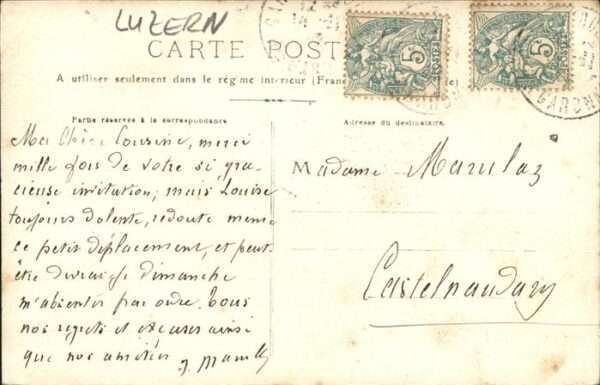 LUZERN
CARTE POST
A utiliser seulement dans le régime intérieur (Fran
Partie réservée à la correspondance
Adresse du destinataire
5
5
GARONNE
Ma Chère Cousine, merci
mille fois de votre si gra-
cieuse invitation; mais Louise
toujours dolente, redoute même
ce petit déplacement, et peut-
être devrai-je dimanche
m'absenter par ordre. Tous
nos regrets et excuses ainsi
que nos amitiés
Madame Marulaz
Castelnaudary